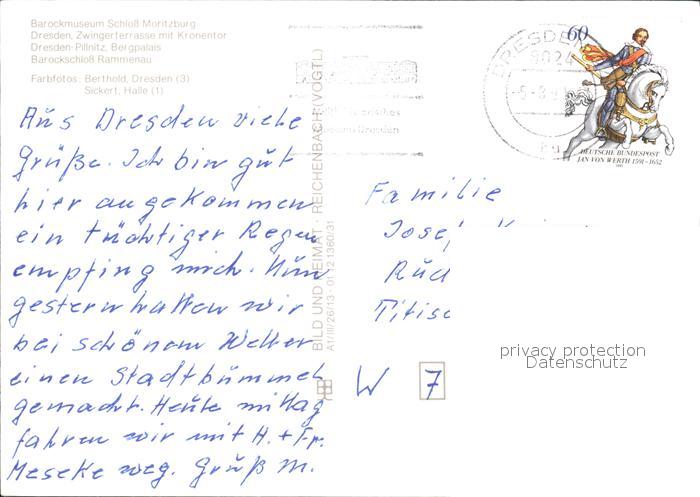 Barockmuseum Schloß Moritzburg
Dresden, Zwingerterrasse mit Kronentor
Dresden-Pillnitz, Bergpalais
Barockschloß Rammenau
Farbfotos: Berthold, Dresden (3)
Sickert, Halle (1)
Aus Dresden viele
Grüße. Ich bin gut
hier angekommen
ein tüchtiger Regen
empfing mich. Nun
gestern hatten wir
bei schönem Wetter
einen Stadtbummel
gemacht. Heute mittag
fahren wir mit H. + Fr.
Meseke weg. Gruß M.
BILD UND HEIMAT · REICHENBACH (VOGTL)
A1/III/26/13 · 01 12 1360/31
DRESDEN
8024
60
DEUTSCHE BUNDESPOST
JAN VON WERTH 1591-1652
Familie
Josef
Titise
W 7
privacy protection
Datenschutz